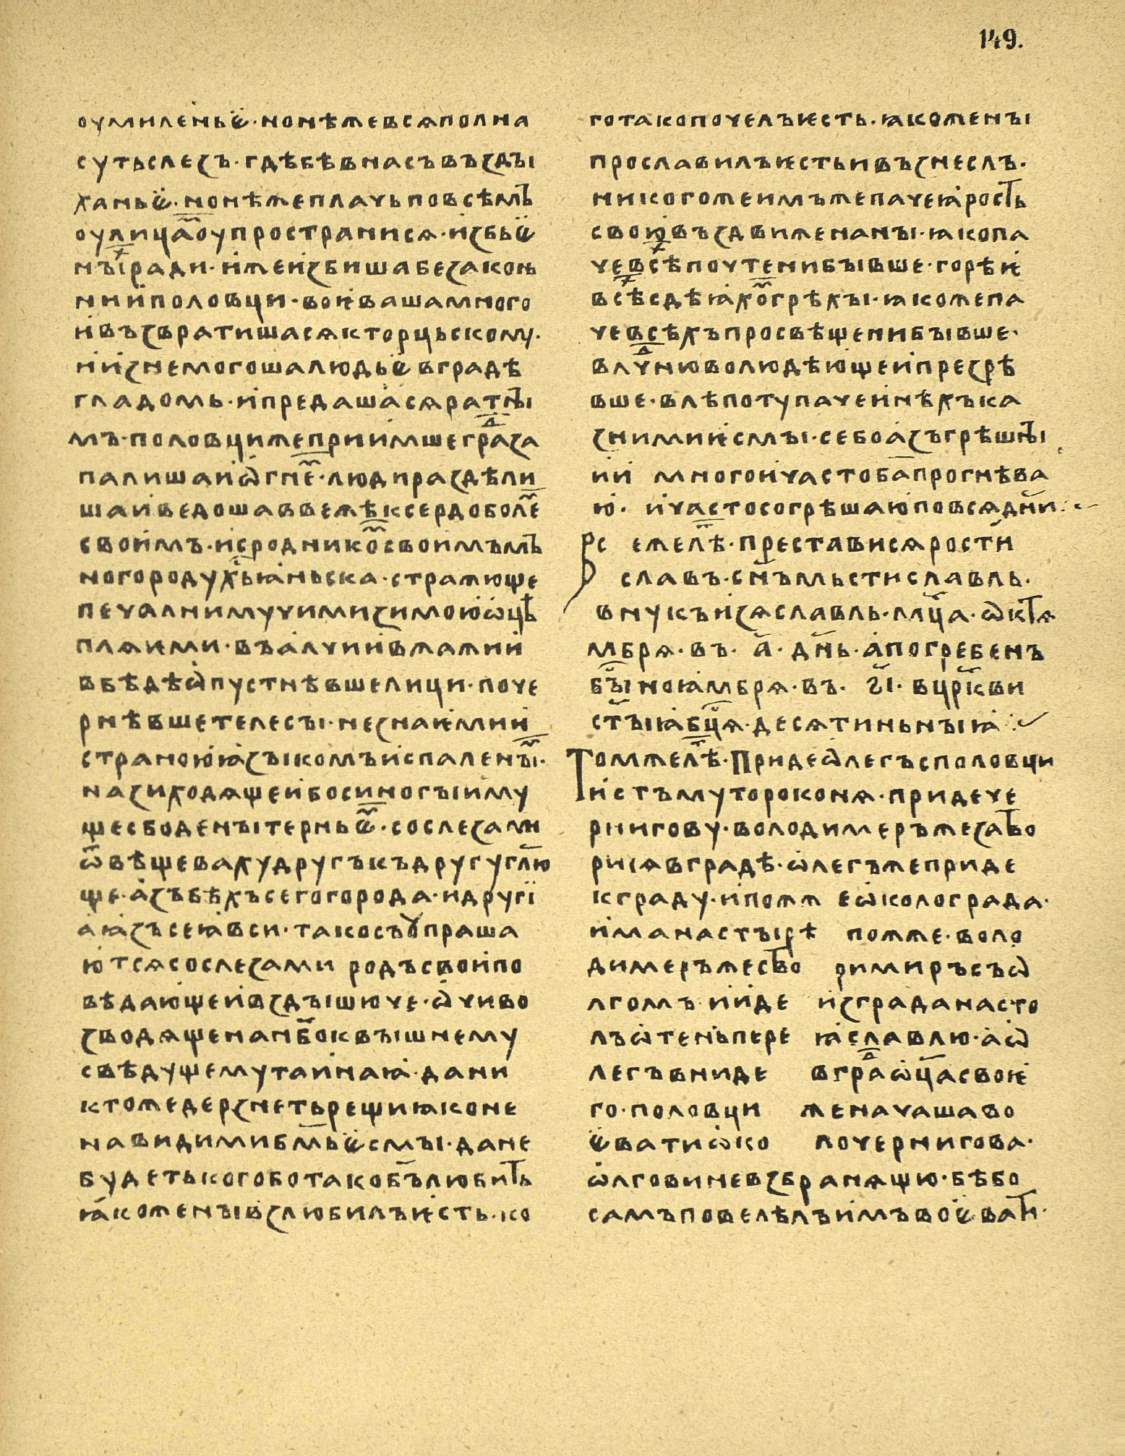 149.
оумиленьє · но нѣжевсяполна
сутьслезъ · гдѣбѣвнасъвъздъı
ханьє · нонѣжеплачьповсѣмъ
оулицаⷨоупространися · избьє
нъıⷯради · ижеизбишабезаконь
нииполовци · воѥвашамного
ивъзвратишасякторцьскому ·
ниизнемогошалюдьє вградѣ
гладомь · ипредашасяратнъı
мъ · половциже прии мшеграⷣза
палишаиѡгнеⷨ · людираздѣли
шаиведошаввежѣⷤксердоболеⷨ
своимъ · исродникоⷨсвоимъмъ
ногородухрⷭ҇тьꙗньска · стражюще
печалнимучимизимоюѡцѣ
пляѥми · въалчиивжажии
вбѣдѣѡпустнѣвшелици · поче
рнѣвшетелесъı · незнаѥмии
страноюꙗзъıкомъиспаленъıⷨ ·
назиходящеибосиногъıиму
щесбоденъıтерньєⷨ · сослезами
ѿвѣщевахудругъкъдругуглю
ще · азъбѣхъсегогорода · идругі
аꙗзъсеꙗвси · такосъупраша
ютсясослезами родъсвоипо
вѣдающеивздъıшюче · ѡчиво
зводященанбⷭ҇оквъıшнему
свѣдущемутаинаꙗ · дани
ктожедерзнетьрещиꙗконе
навидимибмьєсмъı · дане
будетькогоботакобълюбить
ꙗкоженъıвзлюбилъѥсть · ко
готакопочелъѥсть · ꙗкоженъı
прославилъѥстьивъзнеслъ ·
никогожеимъжепачеꙗрость
своювъздвиженанъı · ꙗкопа
чевсѣⷯпочтенибъıвше · горѣѥ
всѣⷯсдѣꙗхоⷨгрѣхъı · ꙗкожепа
чевсѣхъпросвѣщенибъıвше ·
влⷣчнюволюдѣющеипрезрѣ
вше · влѣпотупачеинѣхъка
знимиѥсмъı · себоазъгрѣшнъı
ии многоичастобапрогнѣва
ю · ичастосогрѣшаюповсядни
Рс ежелѣⷮ · престависярости
славъ · снъмьстиславль ·
внукъизяславль · мцⷭ҇а · ѡктя
мбря · въ · а · днь · апогребенъ
бъⷭ҇ıноꙗмбря · въ · ѕі · вцрⷦ҇ви
стъıꙗбцⷣя · десятиньнъıꙗ
Томжелѣⷮ · Придеѡлегъсполовци
истъмутороконя · придече
рнигову · володимеръжезатво
рисявградѣ · ѡлегъжеприде
кграду · ипожя еѡколограда ·
иманастъıрѣ пожже · воло
димеръжество римиръсъѡ
лгомъ · ииде изграданасто
лъѡтеньпере ꙗславлю · аѡ
легъвниде вграⷣѡцⷭ҇асвоѥ
го · половци женачашаво
єватиѡко лочернигова ·
ѡлговиневзбранящю · бѣбо
самъповелѣлъимъвоєвати ·